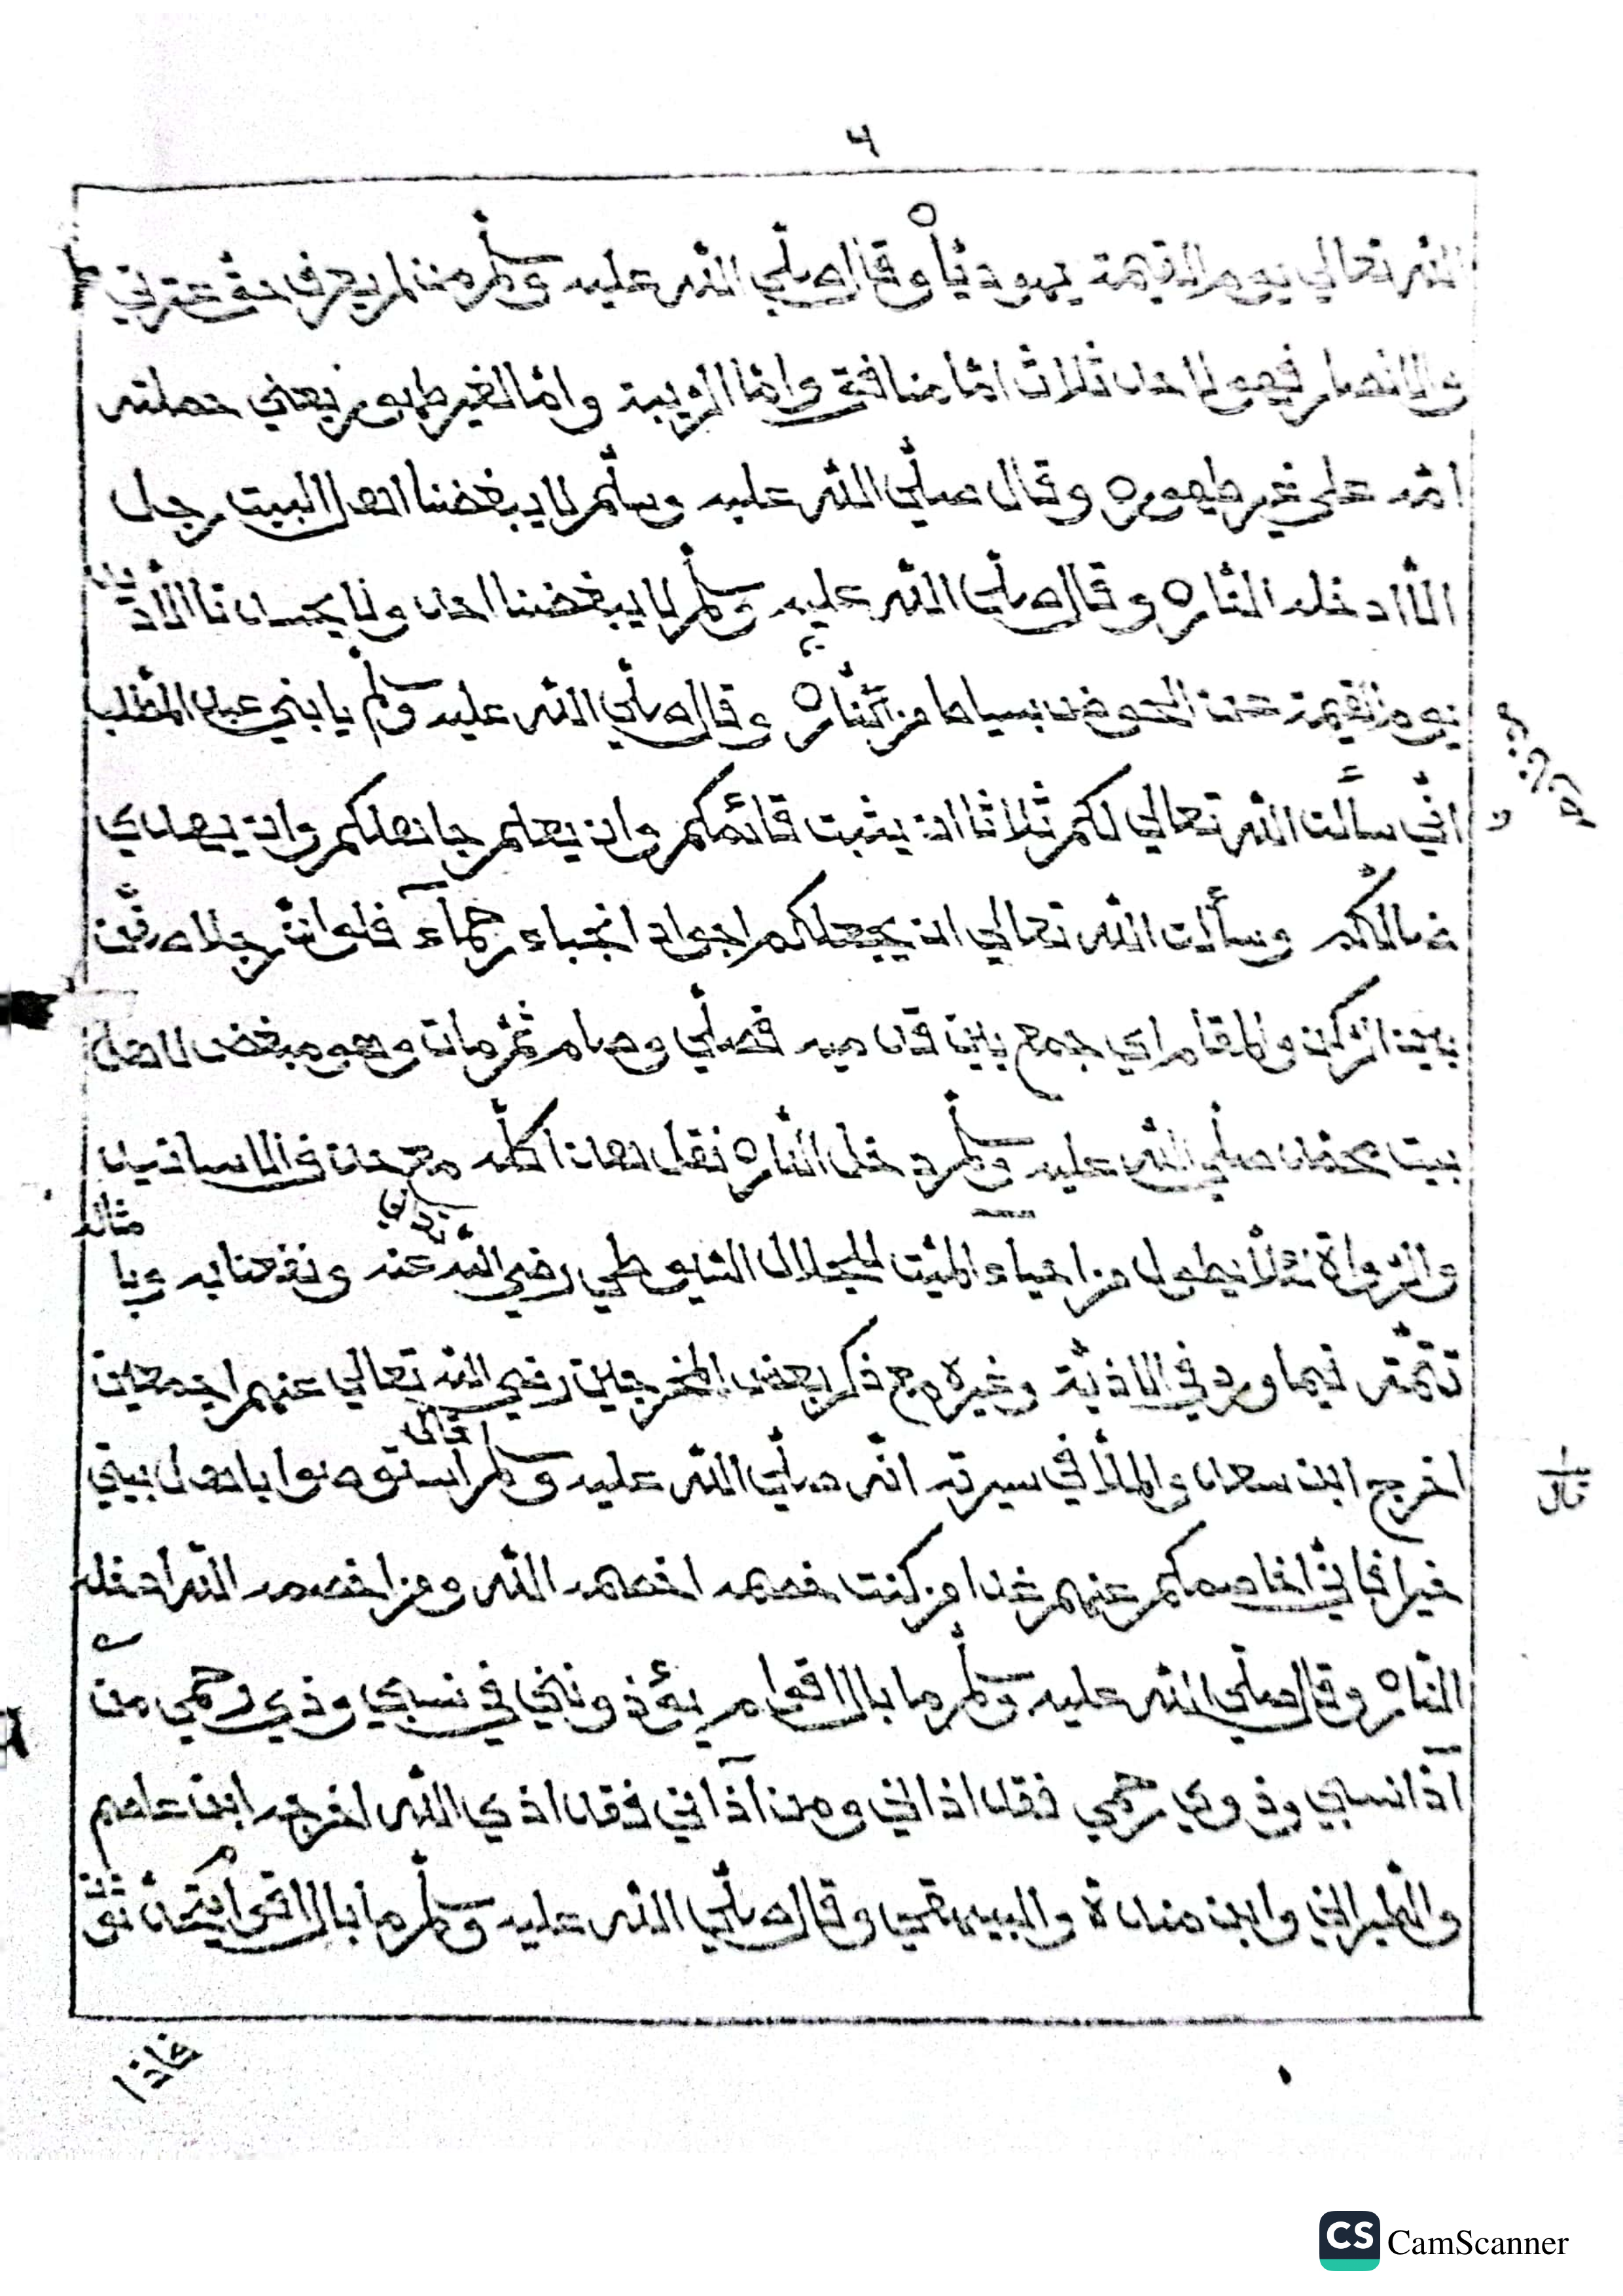 ٦
الله تعالى يوم القيمة يهوديًّا وقال صلى الله عليه وسلم من لم يعرف حق عترتي
والانصار فهو لاحد ثلاث امّا منافق وامّا لزيبة وامّا لغير طهور يعني حملته
امّه على غير طهوره وقال صلى الله عليه وسلم لا يبغضنا اهل البيت رجل
الّا ادخله النار ه وقال صلى الله عليه وسلم لا يبغضنا احد ولا يحسدنا الّا ذيد
يوم القيمة عن الحوض بسياط من النار ه وقال صلى الله عليه وسلم يا بني عبد المطّلب
انّي سألت الله تعالى لكم ثلاثا ان يثبت قائمكم وان يعلم جاهلكم وان يهدي
ضالكم وسألت الله تعالى ان يجعلكم اجواد انجباء رحمآء فلو انّ رجلا صفن
بين الركن والمقام اي جمع بين قدميه فصلّى وصام ثمّ مات وهو مبغض لاهل
بيت محمّد صلّى الله عليه وسلم دخل النار ه نقل هذا كلّه مع حذف الاسانيد
والرواة لئلّا يطول من احياء الميّت للجلال السّيوطي رضي الله عنه ونفعنا به وبا
مثاله
تتمّة فيما ورد في الاذيّة وغيره مع ذكر بعض المخرجين رضي الله تعالى عنهم اجمعين
اخرج ابن سعد والملّا في سيرته انّه صلّى الله عليه وسلم قال استوصوا باهل بيتي
خيرا فانّي اخاصمكم عنهم غدا ومن كنت خصمه اخصمه الله ومن اخصمه الله ادخله
النار ه وقال صلّى الله عليه وسلم ما بال اقوام يؤذونني في نسبي وذي رحمي من
آذا نسبي وذوي رحمي فقد اذاني ومن آذاني فقد اذي الله اخرجه ابن عاصم
والطبراني وابن مندة والبيهقي وقال صلّى الله عليه وسلم ما بال اقوام يتحدّثون
فاذا